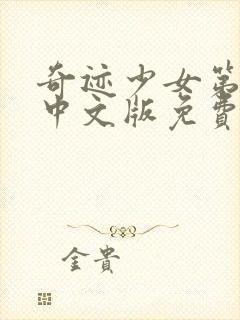 奇迹少女第
中文版免費
金貴